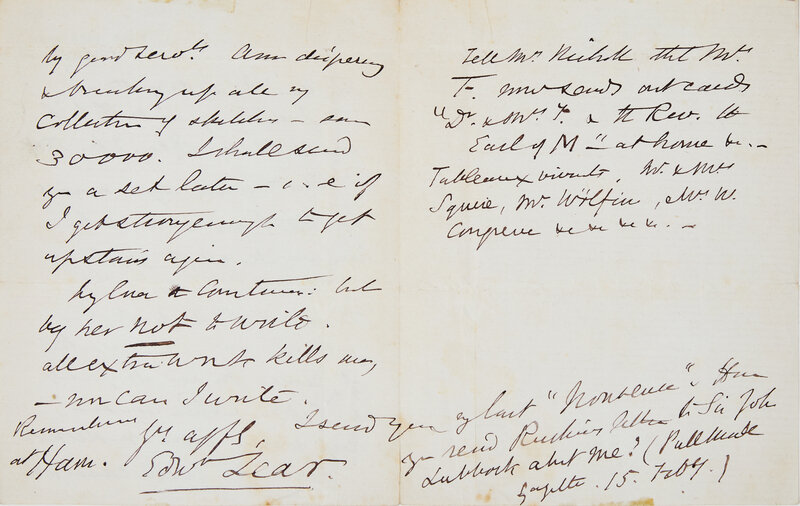 by good serv.ts Am dispersing
& breaking up all my
collection of sketches – some
30000. I shall send
you a set later – i.e if
I get strong enough to get
upstairs again.
My love to Continues: but
beg her not to write.
all extra work kills me,
– nor can I write.
Remembrances
at Ham.
Yrs. affly,
Edwd Lear.
Tell Mrs. that Mrs.
T– now sends out cards
"Dr. & Mrs. T. & the Rev. the
Earl of M–" at home &c. –
Tableaux vivants, Mr. & Mrs
Squire, Mr Wölfin, Mrs. W.
Congreve &c &c &c &c. –
I send you my last "Nonsense". Have
you send Ruskin's letter to Sir Joh
Lubbock abt me? (Pall Mall
Gazette. 15. Feby.)